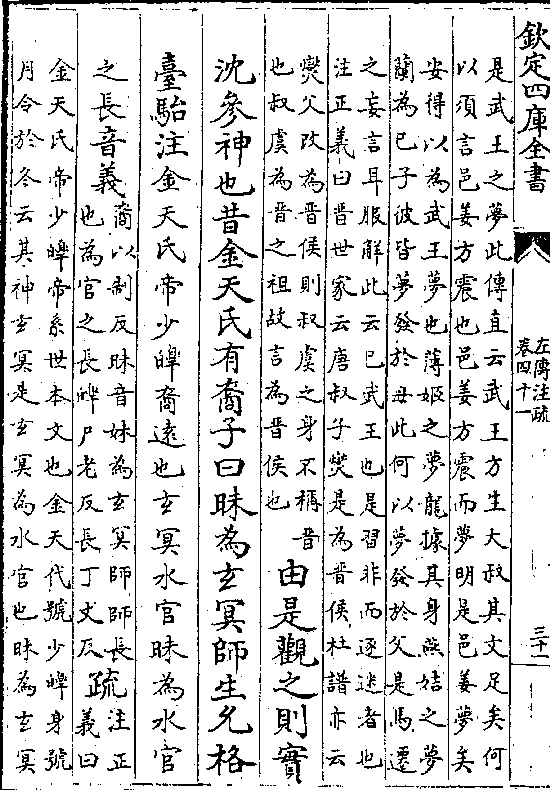 欽定四庫全書
左傳注疏
卷四十一
三十一
是武王之夢此傳直云武王方生大叔其文足矣何
以須言邑姜方震也邑姜方震而夢明是邑姜夢矣
安得以為武王夢也薄姬之夢龍據其身燕姞之夢
蘭為己子彼皆夢發於母此何以夢發於父是馬遷
之妄言耳服解此云己武王也是習非而逐迷者也
注正義曰晉世家云唐叔子燮是為晉侯杜譜亦云
燮父改為晉侯則叔虞之身不稱晉
也叔虞為晉之祖故言為晉侯也
由是觀之則實
沈參神也昔金天氏有裔子曰昧為玄冥師生允格
臺駘注金天氏帝少皥裔遠也玄冥水官昧為水官
之長音義
裔以制反昧音妹為玄冥師師長
也為官之長皥尸老反長丁丈反
疏
注正
義曰
金天氏帝少皥帝系世本文也金天代號少皥身號
月令於冬云其神玄冥是玄冥為水官也昧為玄冥